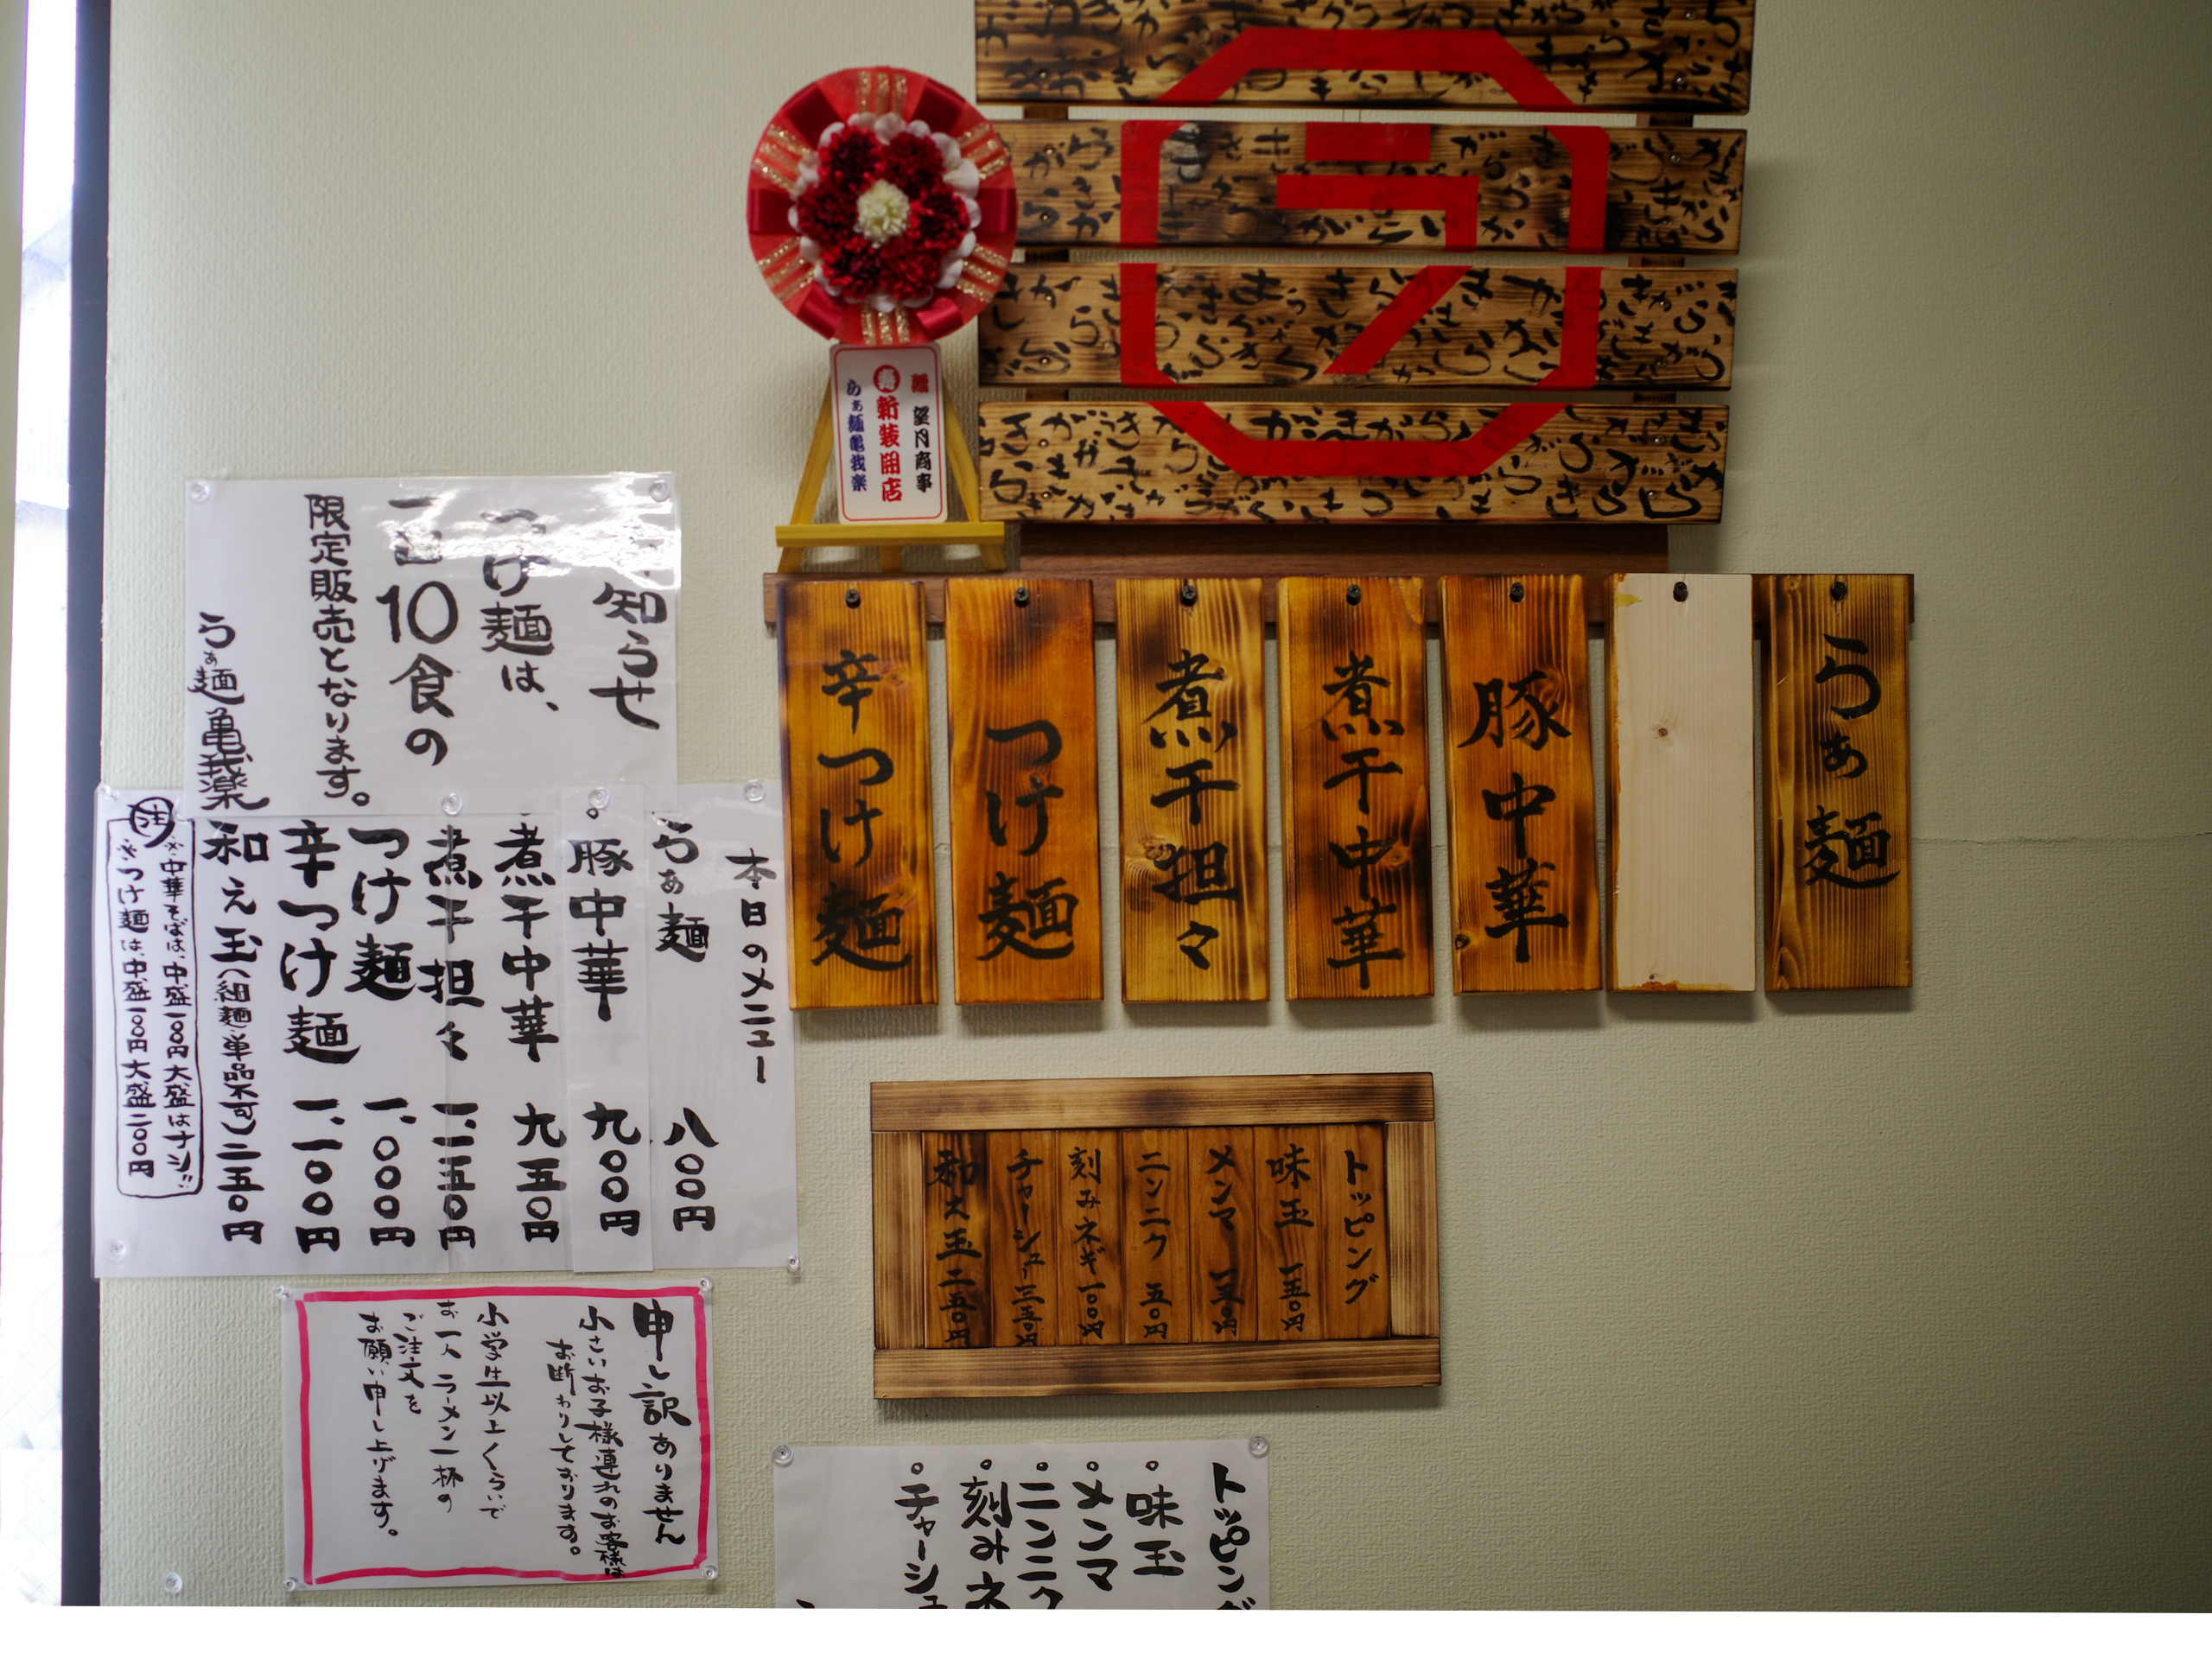 贈 望月商事
寿 新装開店
らぁ麺亀我楽
らぁ麺
豚中華
煮干中華
煮干担々
つけ麺
辛つけ麺
知らせ
つけ麺は、
一日10食の
限定販売となります。
らぁ麺 亀我楽
本日のメニュー
らぁ麺 八〇〇円
豚中華 九〇〇円
煮干中華 九五〇円
煮干担々 一、二五〇円
つけ麺 一、〇〇〇円
辛つけ麺 一、一〇〇円
和え玉(細麺・単品不可)二五〇円
注
※中華そばは、中盛一〇〇円大盛はナシ!!
※つけ麺は、中盛一〇〇円 大盛二〇〇円
トッピング
味玉 一五〇円
メンマ 一五〇円
ニンニク 五〇円
刻みネギ 一〇〇円
チャーシュー 三五〇円
和え玉 二五〇円
申し訳ありません
小さいお子様連れのお客様は
お断わりしております。
小学生以上くらいで
お一人 ラーメン一杯の
ご注文を
お願い申し上げます。
トッピング
味玉
メンマ
ニンニク
刻みネ
チャーシュ